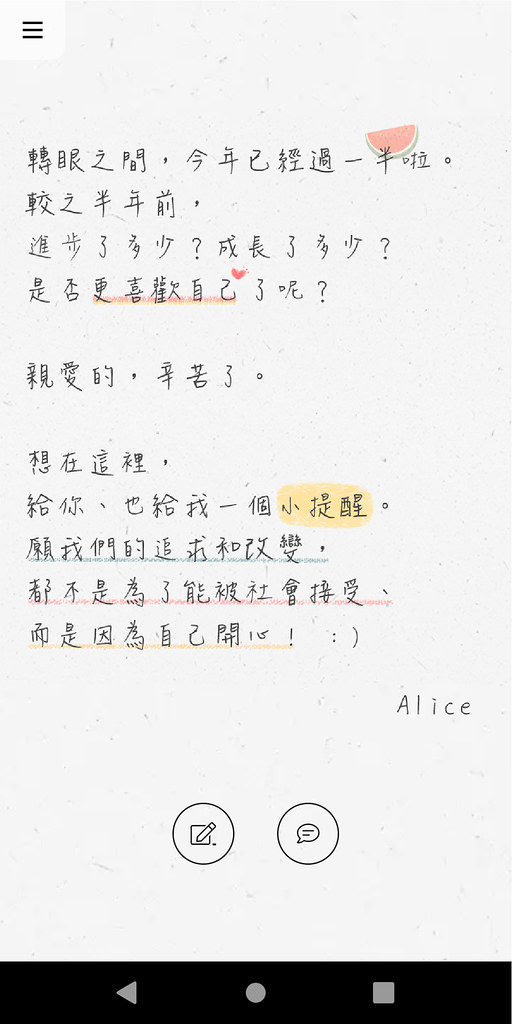 轉眼之間，今年已經過一半啦。
較之半年前，
進步了多少？成長了多少？
是否更喜歡自己了呢？
親愛的，辛苦了。
想在這裡，
給你、也給我一個小提醒。
願我們的追求和改變，
都不是為了能被社會接受、
而是因為自己開心！ :)
Alice